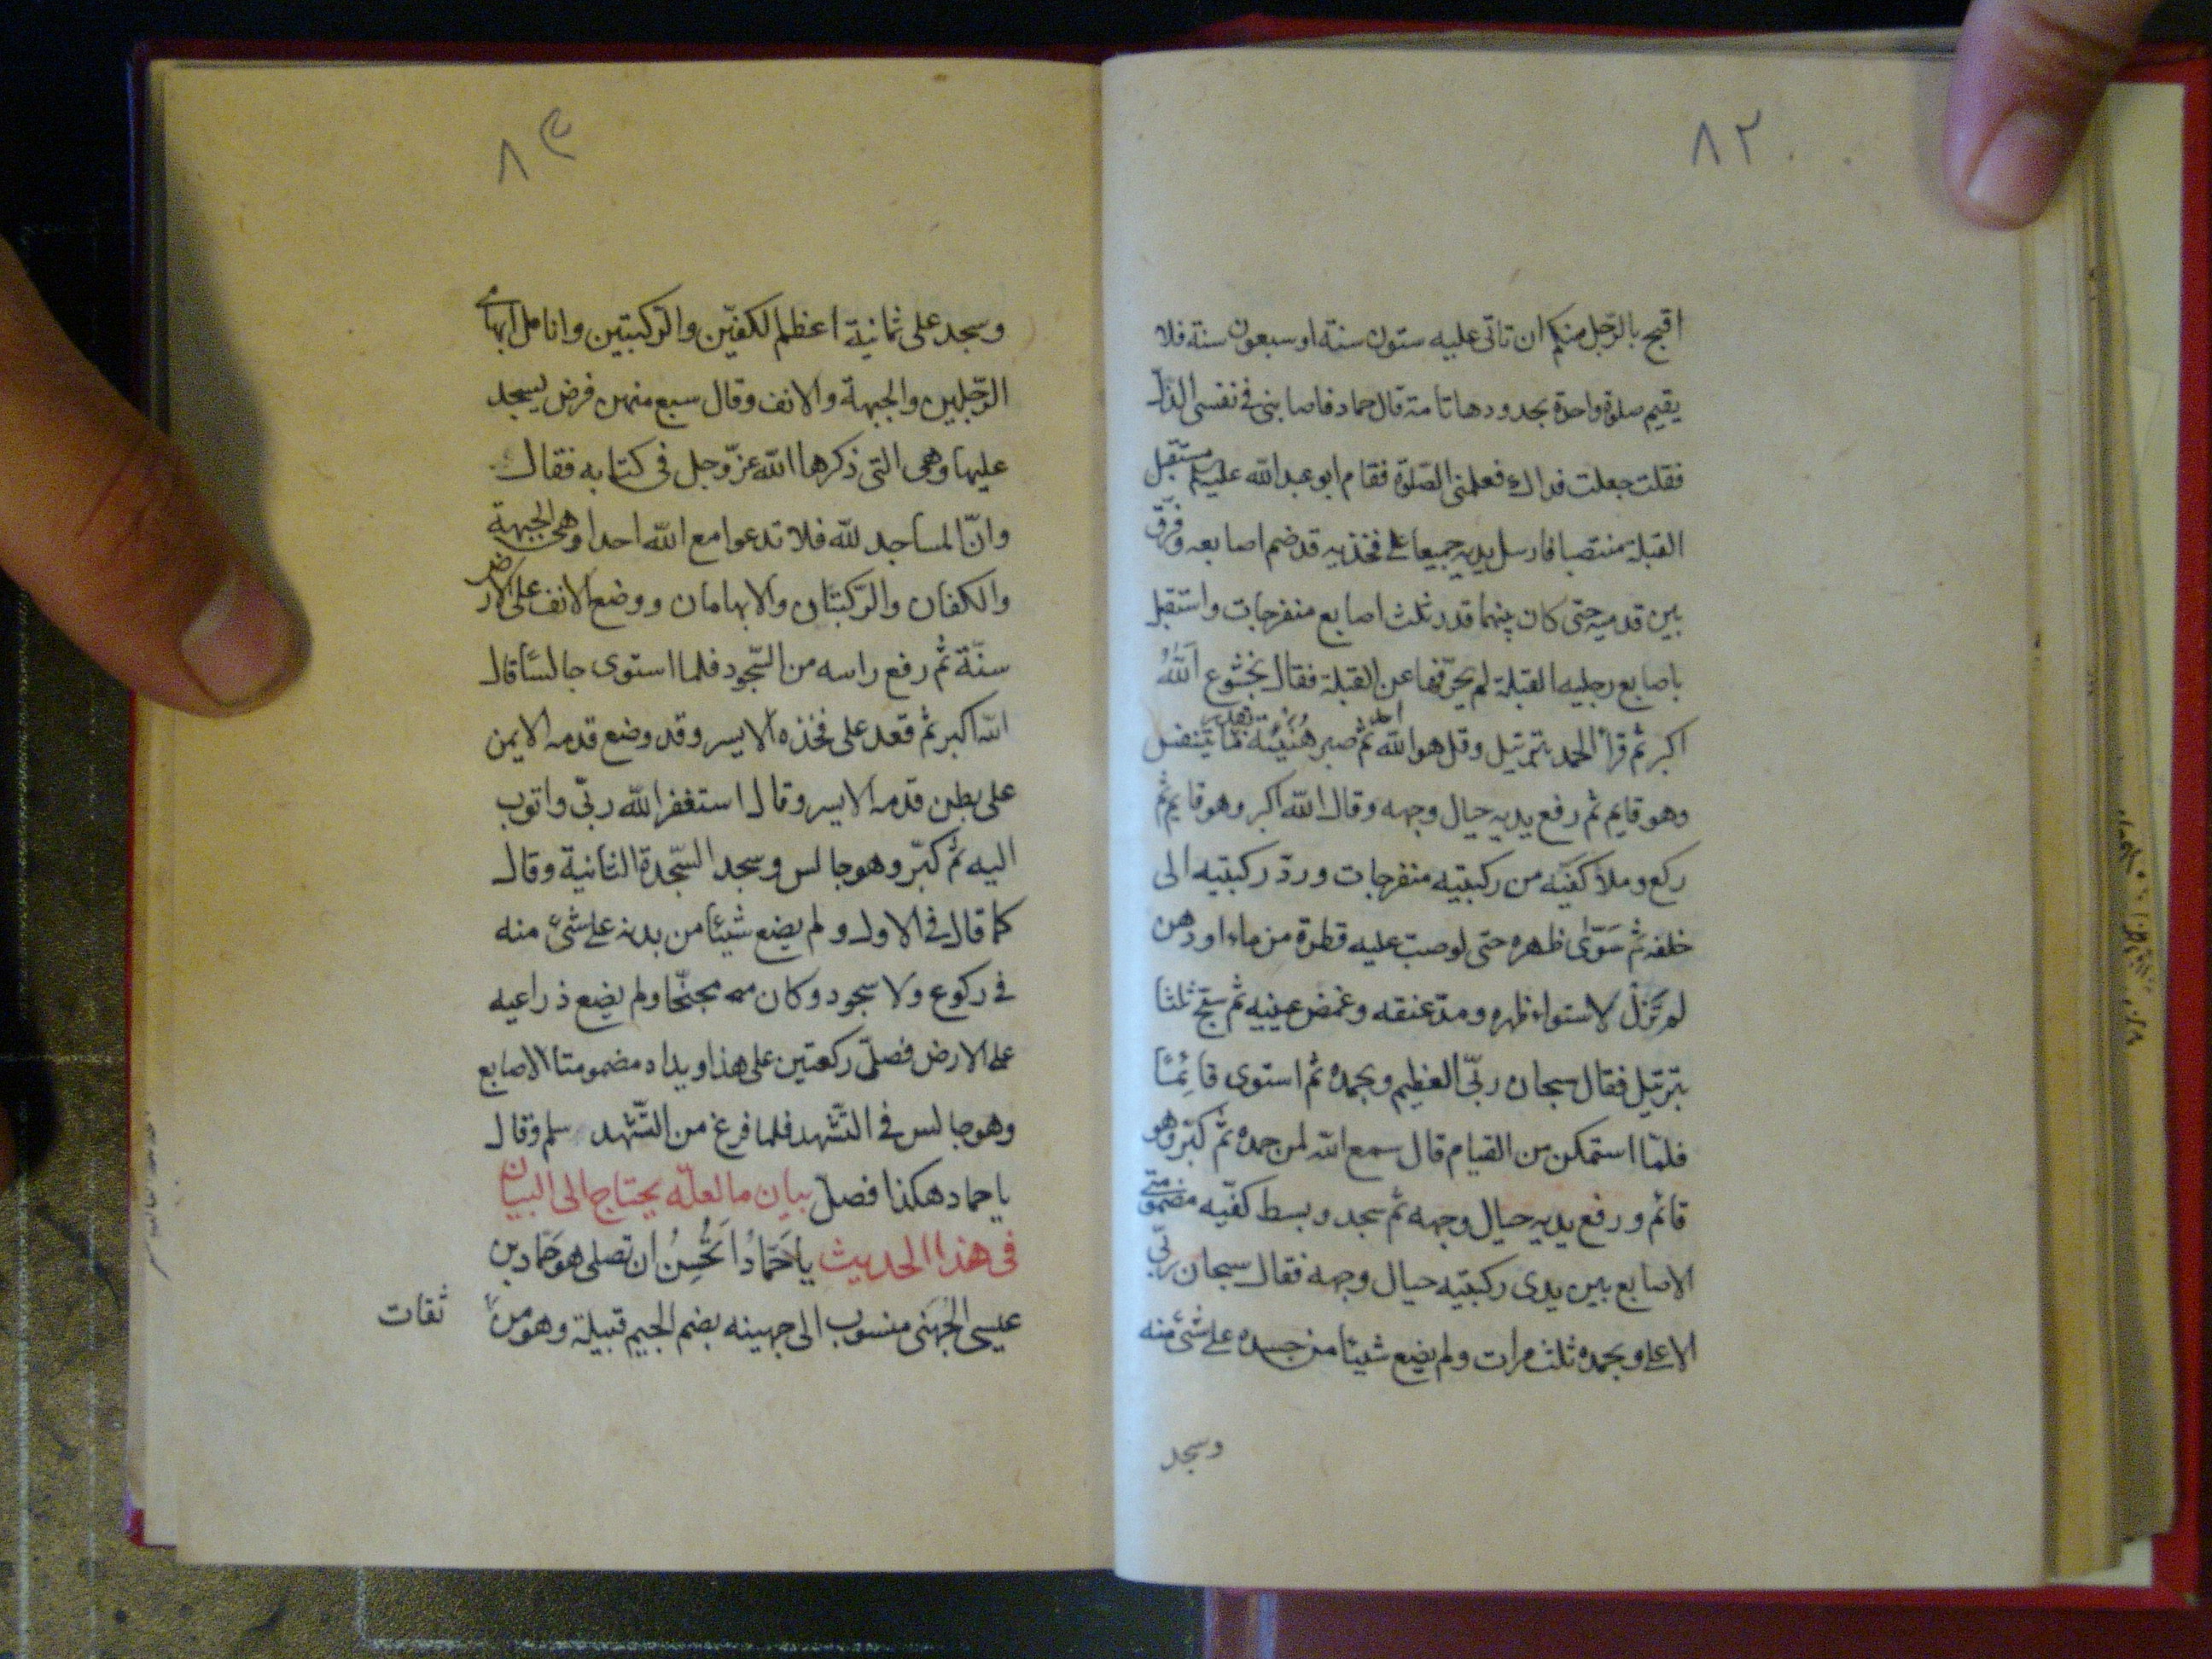 ٨٢
اقبح بالرّجل منكم ان تاتى عليه ستون سنة او سبعون سنة فلا
يقيم صلوة واحدة بحدودها تامة قال حماد فاصابنى فى نفسى الذلّ
فقلت جعلت فداك فعلمنى الصّلوة فقام ابو عبد الله عليه مستقبل
القبلة منتصبا فارسل يديه جميعا على فخذيه قد ضم اصابعه وفرّق
بين قدميه حتى كان بينهما قدر ثلث اصابع منفرجات واستقبل
باصابع رجليه القبلة لم يحرّفها عن القبلة فقال بخشوع اَللّهُ
اكبر ثم قرأ الحمد بترتيل وقل هو الله احد ثم صبر هُنَيْئَة بقدر ما يتنفس
وهو قايم ثم رفع يديه حيال وجهه وقال الله اكبر وهو قايم ثم
ركع وملأ كفيّه من ركبتيه منفرجات وردّ ركبتيه الى
خلفه ثم سَوّى ظهره حتى لو صبت عليه قطرة من ماء او دهن
لم تَزُلْ لاستواء ظهره ومدّ عنقه وغمض عينيه ثم سبّح ثلثا
بترتيل فقال سبحان ربّى العظيم وبحمده ثم استوى قائِمًا
فلمّا استمكن من القيام قال سمع الله لمن حمده ثم كبّر وهو
قائم ورفع يديه حيال وجهه ثم سجد وبسط كفّيه مضمومتى
الاصابع بين يدى ركبتيه حيال وجهه فقال سبحان ربّى
الاعلى وبحمده ثلث مرات ولم يضع شيئا من جسده على شئ منه
وسجد
٨٣
وسجد على ثمانية اعظم الكفيّن والرّكبتين وانامل ابهامى
الرّجلين والجبهة والانف وقال سبع منهن فرض يسجد
عليها وهى التى ذكرها الله عزّ وجل فى كتابه فقال
وانّ المساجد لله فلا تدعوا مع الله احدا وهى الجبهة
والكفان والرّكبتان والابهامان ووضع الانف على الارض
سنّة ثم رفع راسه من السّجود فلما استوى جالسًا قال
الله اكبر ثم قعد على فخذه الايسر وقد وضع قدمه الايمن
على بطن قدمه الايسر وقال استغفر الله ربّى واتوب
اليه ثم كبّر وهو جالس وسجد السّجدة الثانية وقال
كما قال فى الاول ولم يضع شيئا من بدنه على شئ منه
فى ركوع ولا سجود وكان مجنّحا ولم يضع ذراعيه
على الارض فصلّى ركعتين على هذا ويداه مضمومتا الاصابع
وهو جالس فى التّشهد فلما فرغ من التّشهد سلم وقال
يا حماد هكذا فصلّ بيان ما لعلّه يحتاج الى البيان
فى هذا الحديث يا حَمّادُ اَتُحْسِنُ ان تصلى هو حمّاد بن
عيسى الجُهَنى منسوب الى جهينه بضم الجيم قبيلة وهو من
ثقات